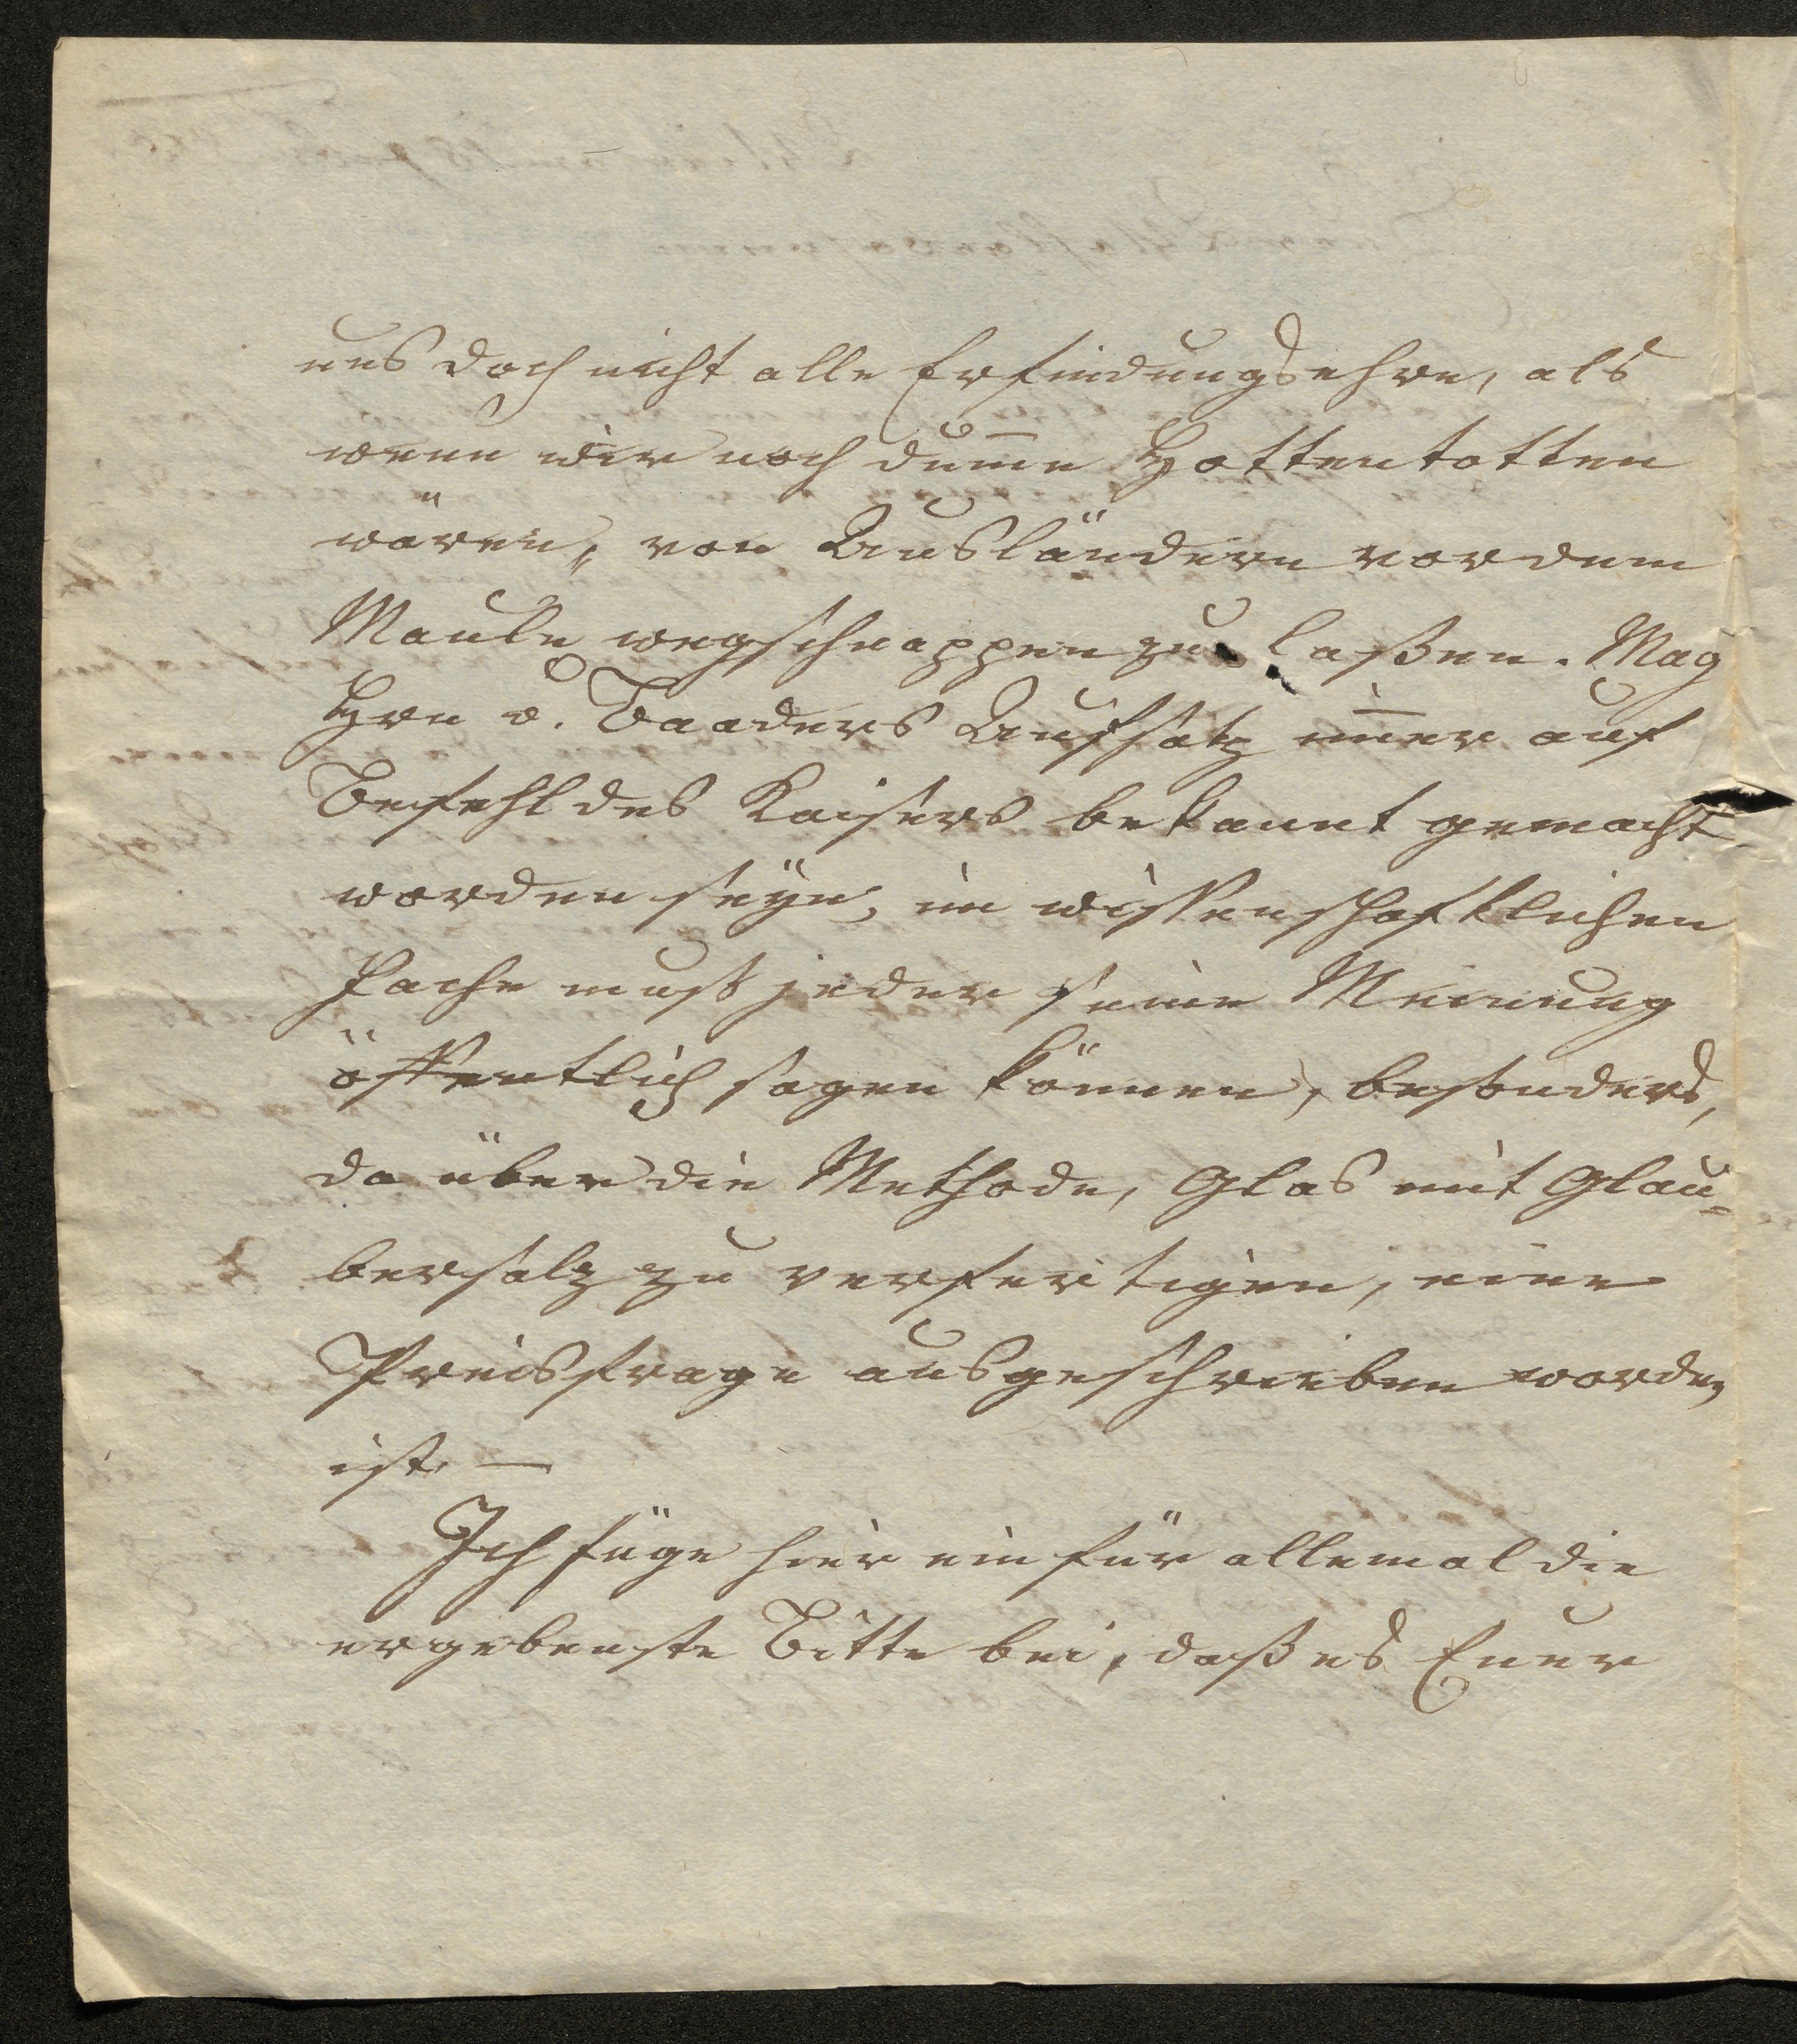 uns doch nicht alle Erfindungsehre, als
wenn wir noch dum̄e Hottentotten
wären, von Ausländern vor dem
Maule wegschnappen zu laßen. Mag
Hrn v. Baaders Aufsatz im̄er auf
Befehl des Kaisers bekannt gemacht
worden seÿn, im wissenschaftlichen
Fache muß jeder seine Meinung
öffentlich sagen können, besonders,
da über die Methode, Glas mit Glau=
bersalz zu verfertigen, eine
Preisfrage ausgeschrieben worden
ist. —
Ich füge hier ein für allemal die
ergebenste Bitte bei, daß es Euer